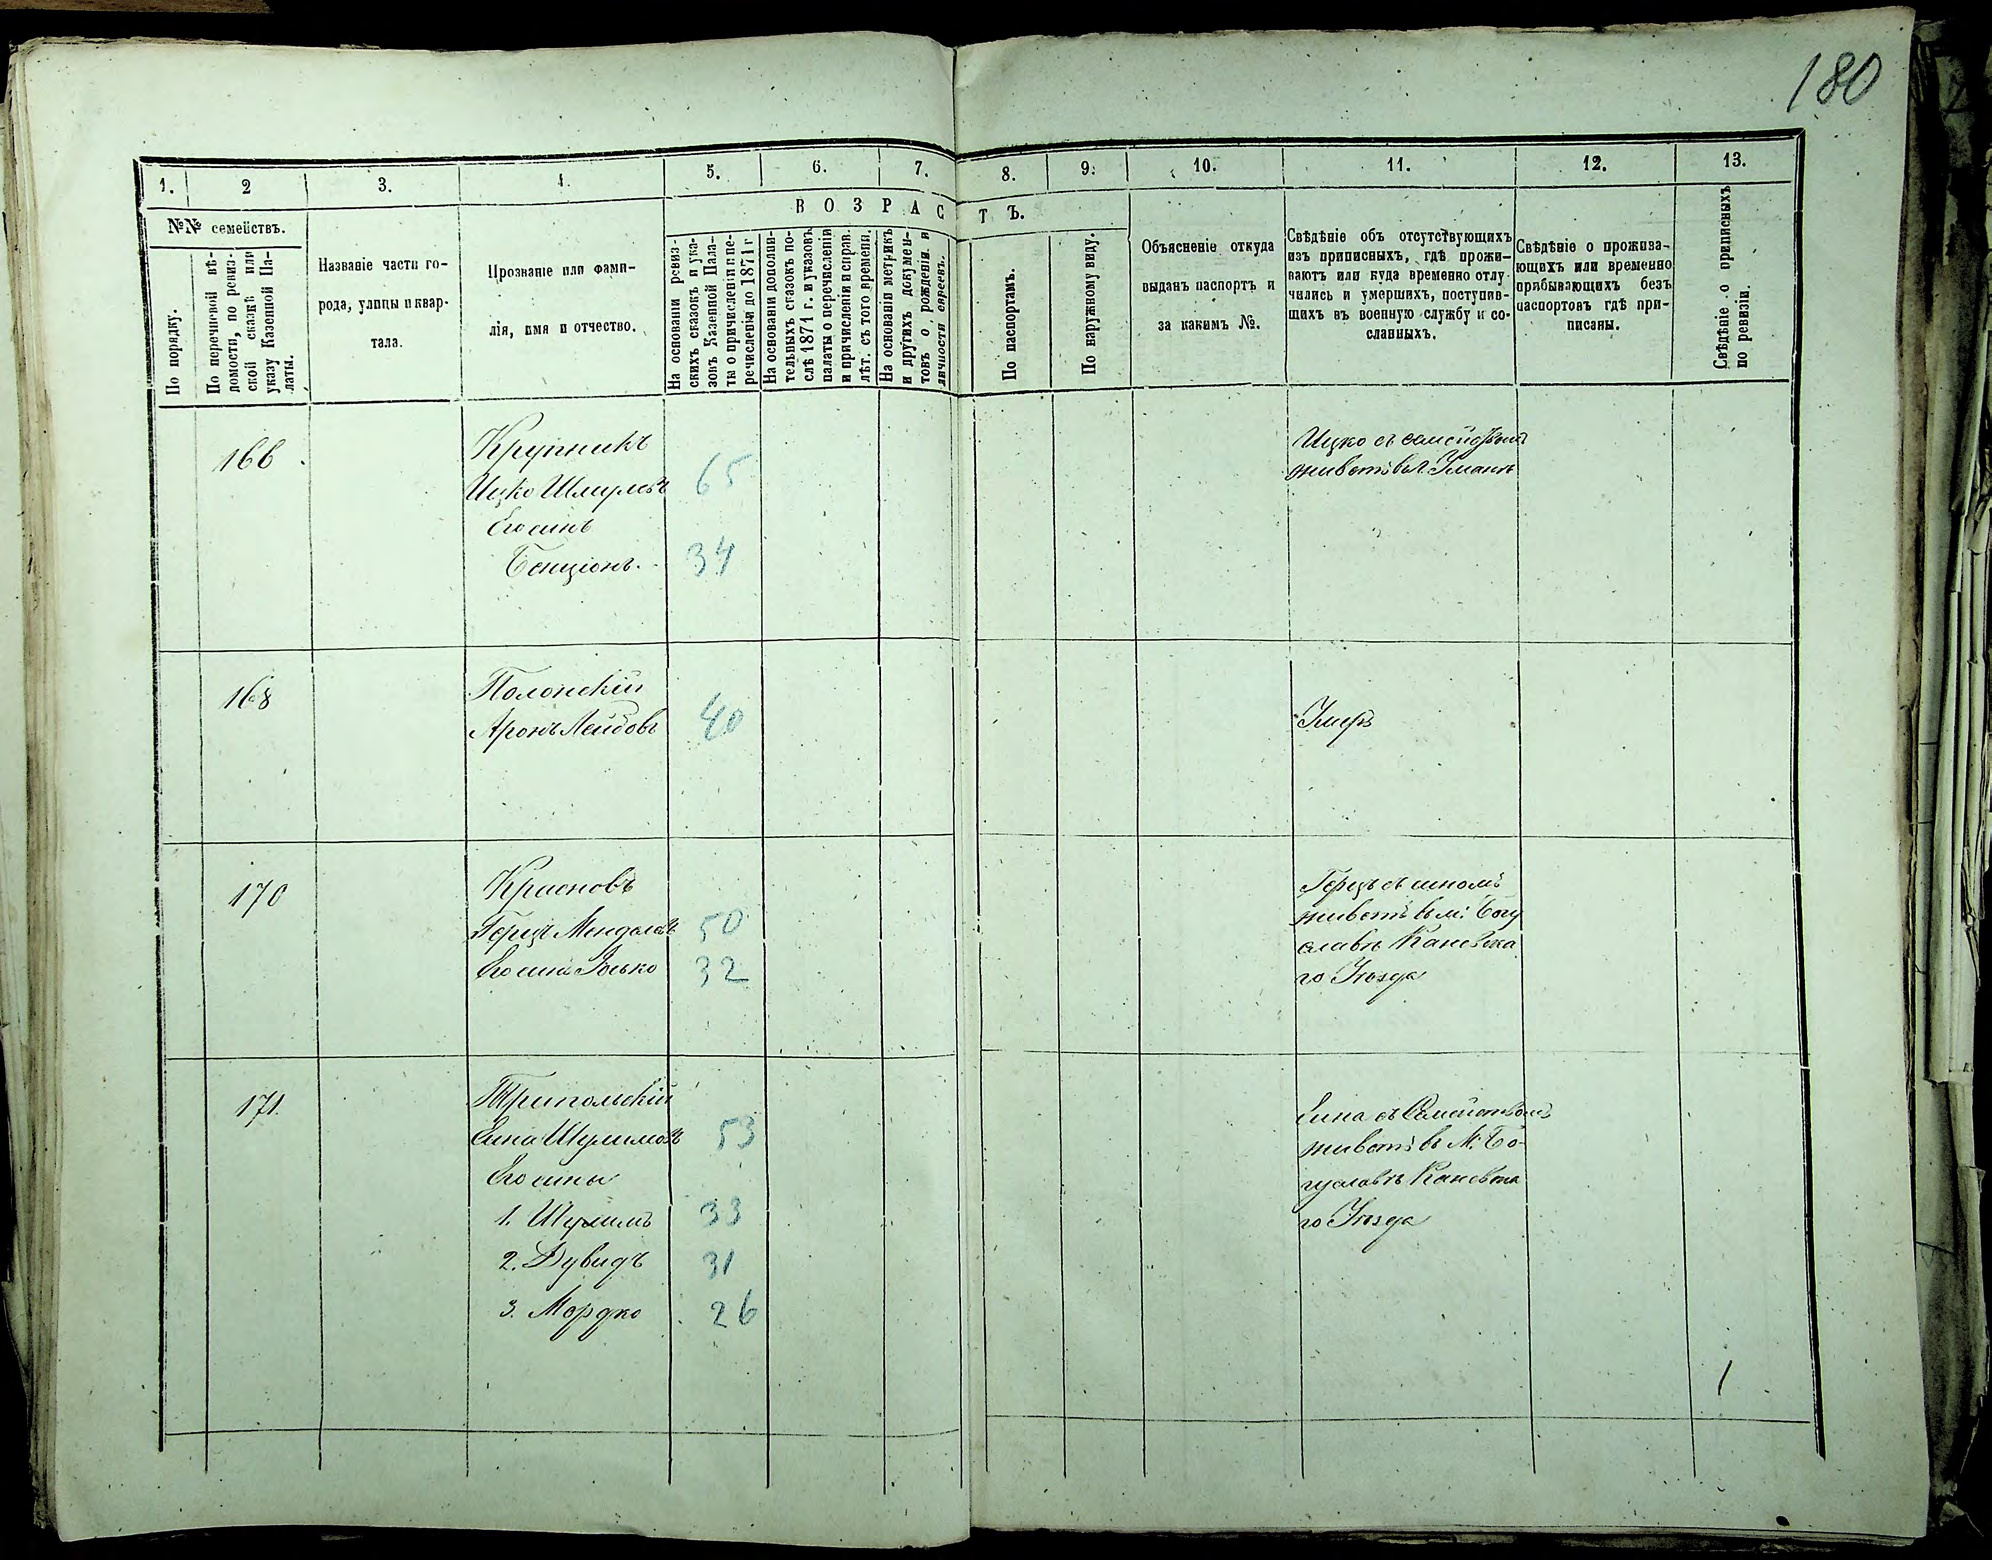 180
1.
2
3.
4.
5.
6.
7.
8.
9.
10.
11.
12.
13.
№№ семействъ.
По порядку.
По перечневой вѣ-
домости, по ревиз-
ской сказкѣ или
указу Казенной Па-
латы.
Названіе части го-
рода, улицы и квар-
тала.
Прозваніе или фами-
лія, имя и отчество.
ВОЗРАСТЪ.
На основаніи ревиз-
скихъ сказокъ и ука-
зовъ Казенной Пала-
ты о причисленіи и пе-
речисленіи до 1871 г
На основаніи дополни-
тельныхъ сказокъ по-
слѣ 1871 г. и указовъ
палаты о перечисленіи
и причисленіи и справ.
лѣт. съ того времени.
На основаніи метрикъ
и другихъ докумен-
товъ о рожденіи и
личности евреевъ.
По паспортамъ.
По наружному виду.
Объясненіе откуда
выданъ паспортъ и
за какимъ №.
Свѣдѣніе объ отсутствующихъ
изъ приписныхъ, гдѣ прожи-
ваютъ или куда временно отлу-
чились и умершихъ, поступив-
шихъ въ военную службу и со-
сланныхъ.
Свѣдѣніе о прожива-
ющихъ или временно
прибывающихъ безъ
паспортовъ гдѣ при-
писаны.
Свѣдѣніе о приписныхъ
по ревизіи.
166
Крупникъ
Ицко Шмулевъ 65
Его сынъ
Бенціонъ 34
Ицко съ семействомъ
живетъ въ г. Умани
168
Полонскій
Аронъ Лейбовъ 40
Умеръ
170
Красновъ
Герцъ Менделевъ 50
Его сынъ Іосько 32
Герцъ съ сыномъ
живетъ въ м: Богу
славѣ Каневска
го Уѣзда
171.
Трипольскій
Сина Шулимовъ 53
Его сыны
1. Шулимъ 33
2. Дувидъ 31
3. Мордко 26
Сина съ Семействомъ
живетъ въ М: Бо-
гуславѣ Каневска
го Уѣзда